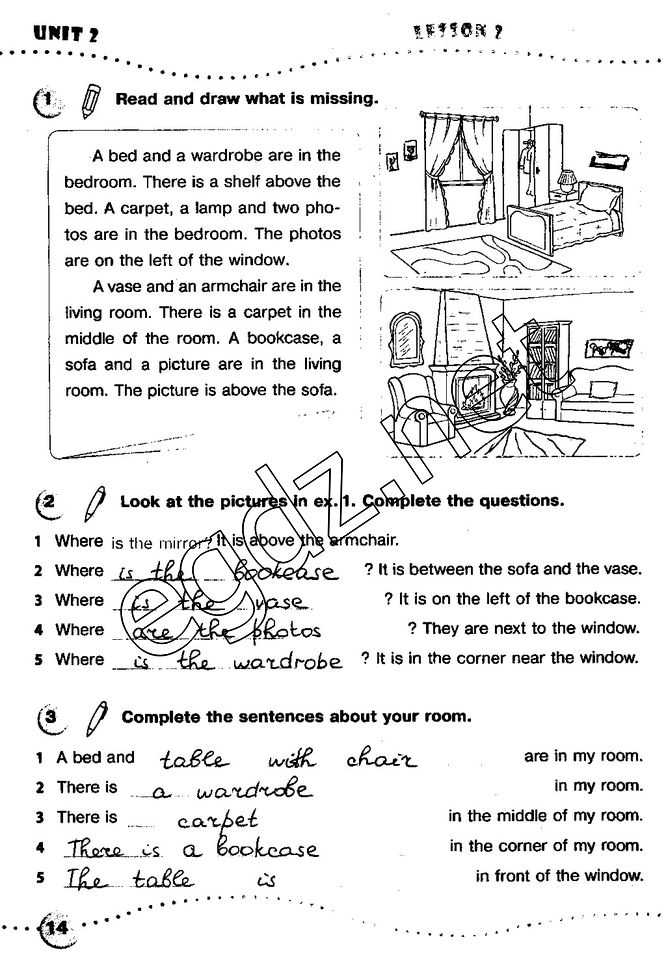 UNIT 2 LESSON 2
1 Read and draw what is missing.
A bed and a wardrobe are in the
bedroom. There is a shelf above the
bed. A carpet, a lamp and two pho-
tos are in the bedroom. The photos
are on the left of the window.
A vase and an armchair are in the
living room. There is a carpet in the
middle of the room. A bookcase, a
sofa and a picture are in the living
room. The picture is above the sofa.
egdz.net
2 Look at the pictures in ex. 1. Complete the questions.
1 Where is the mirror? It is above the armchair.
2 Where is the bookcase ? It is between the sofa and the vase.
3 Where is the vase ? It is on the left of the bookcase.
4 Where are the photos ? They are next to the window.
5 Where is the wardrobe ? It is in the corner near the window.
3 Complete the sentences about your room.
1 A bed and table with chair are in my room.
2 There is a wardrobe in my room.
3 There is carpet in the middle of my room.
4 There is a bookcase in the corner of my room.
5 The table is in front of the window.
14